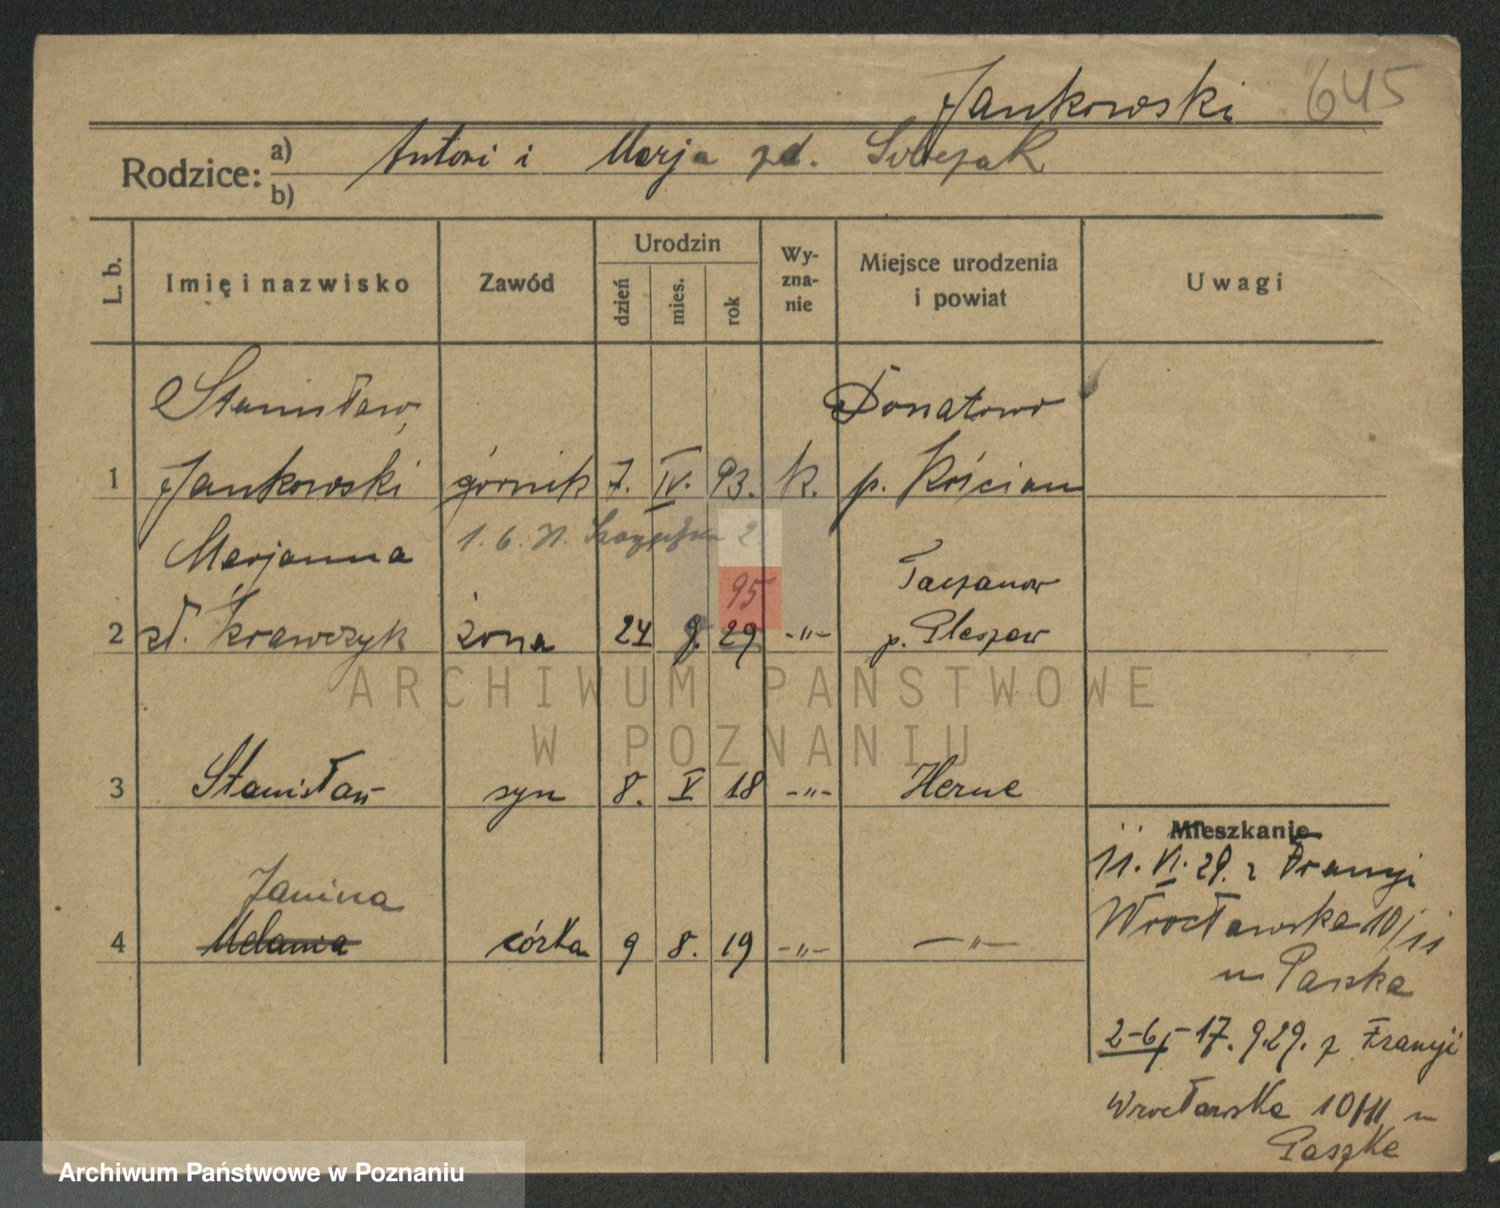 Jankowski 645
Rodzice: a) Antoni i Marja zd.
b)
L. b. Imię i nazwisko Zawód Urodzin dzień mies. rok Wy-zna-nie Miejsce urodzenia i powiat Uwagi
Stanisław Donatowo
1 Jankowski górnik 7. IV. 93. k. p. Kościan
Marjanna 1. 6. 2. Taczanow
95
2 Krawczyk żona 24 9. 29 -"- p. Pleszew
ARCHIWUM PAŃSTWOWE
W POZNANIU
3 Stanisław syn 8. V 18 -"- Herne
Mieszkanie
11. VI. 29. z Francji
Janina
Wrocławska 10/11
4 Melania córka 9 8. 19 -"- -"-
u Paszka
2-6, -17. 9. 29. z Francji
Wrocławska 10/11 u
Paszke
Archiwum Państwowe w Poznaniu